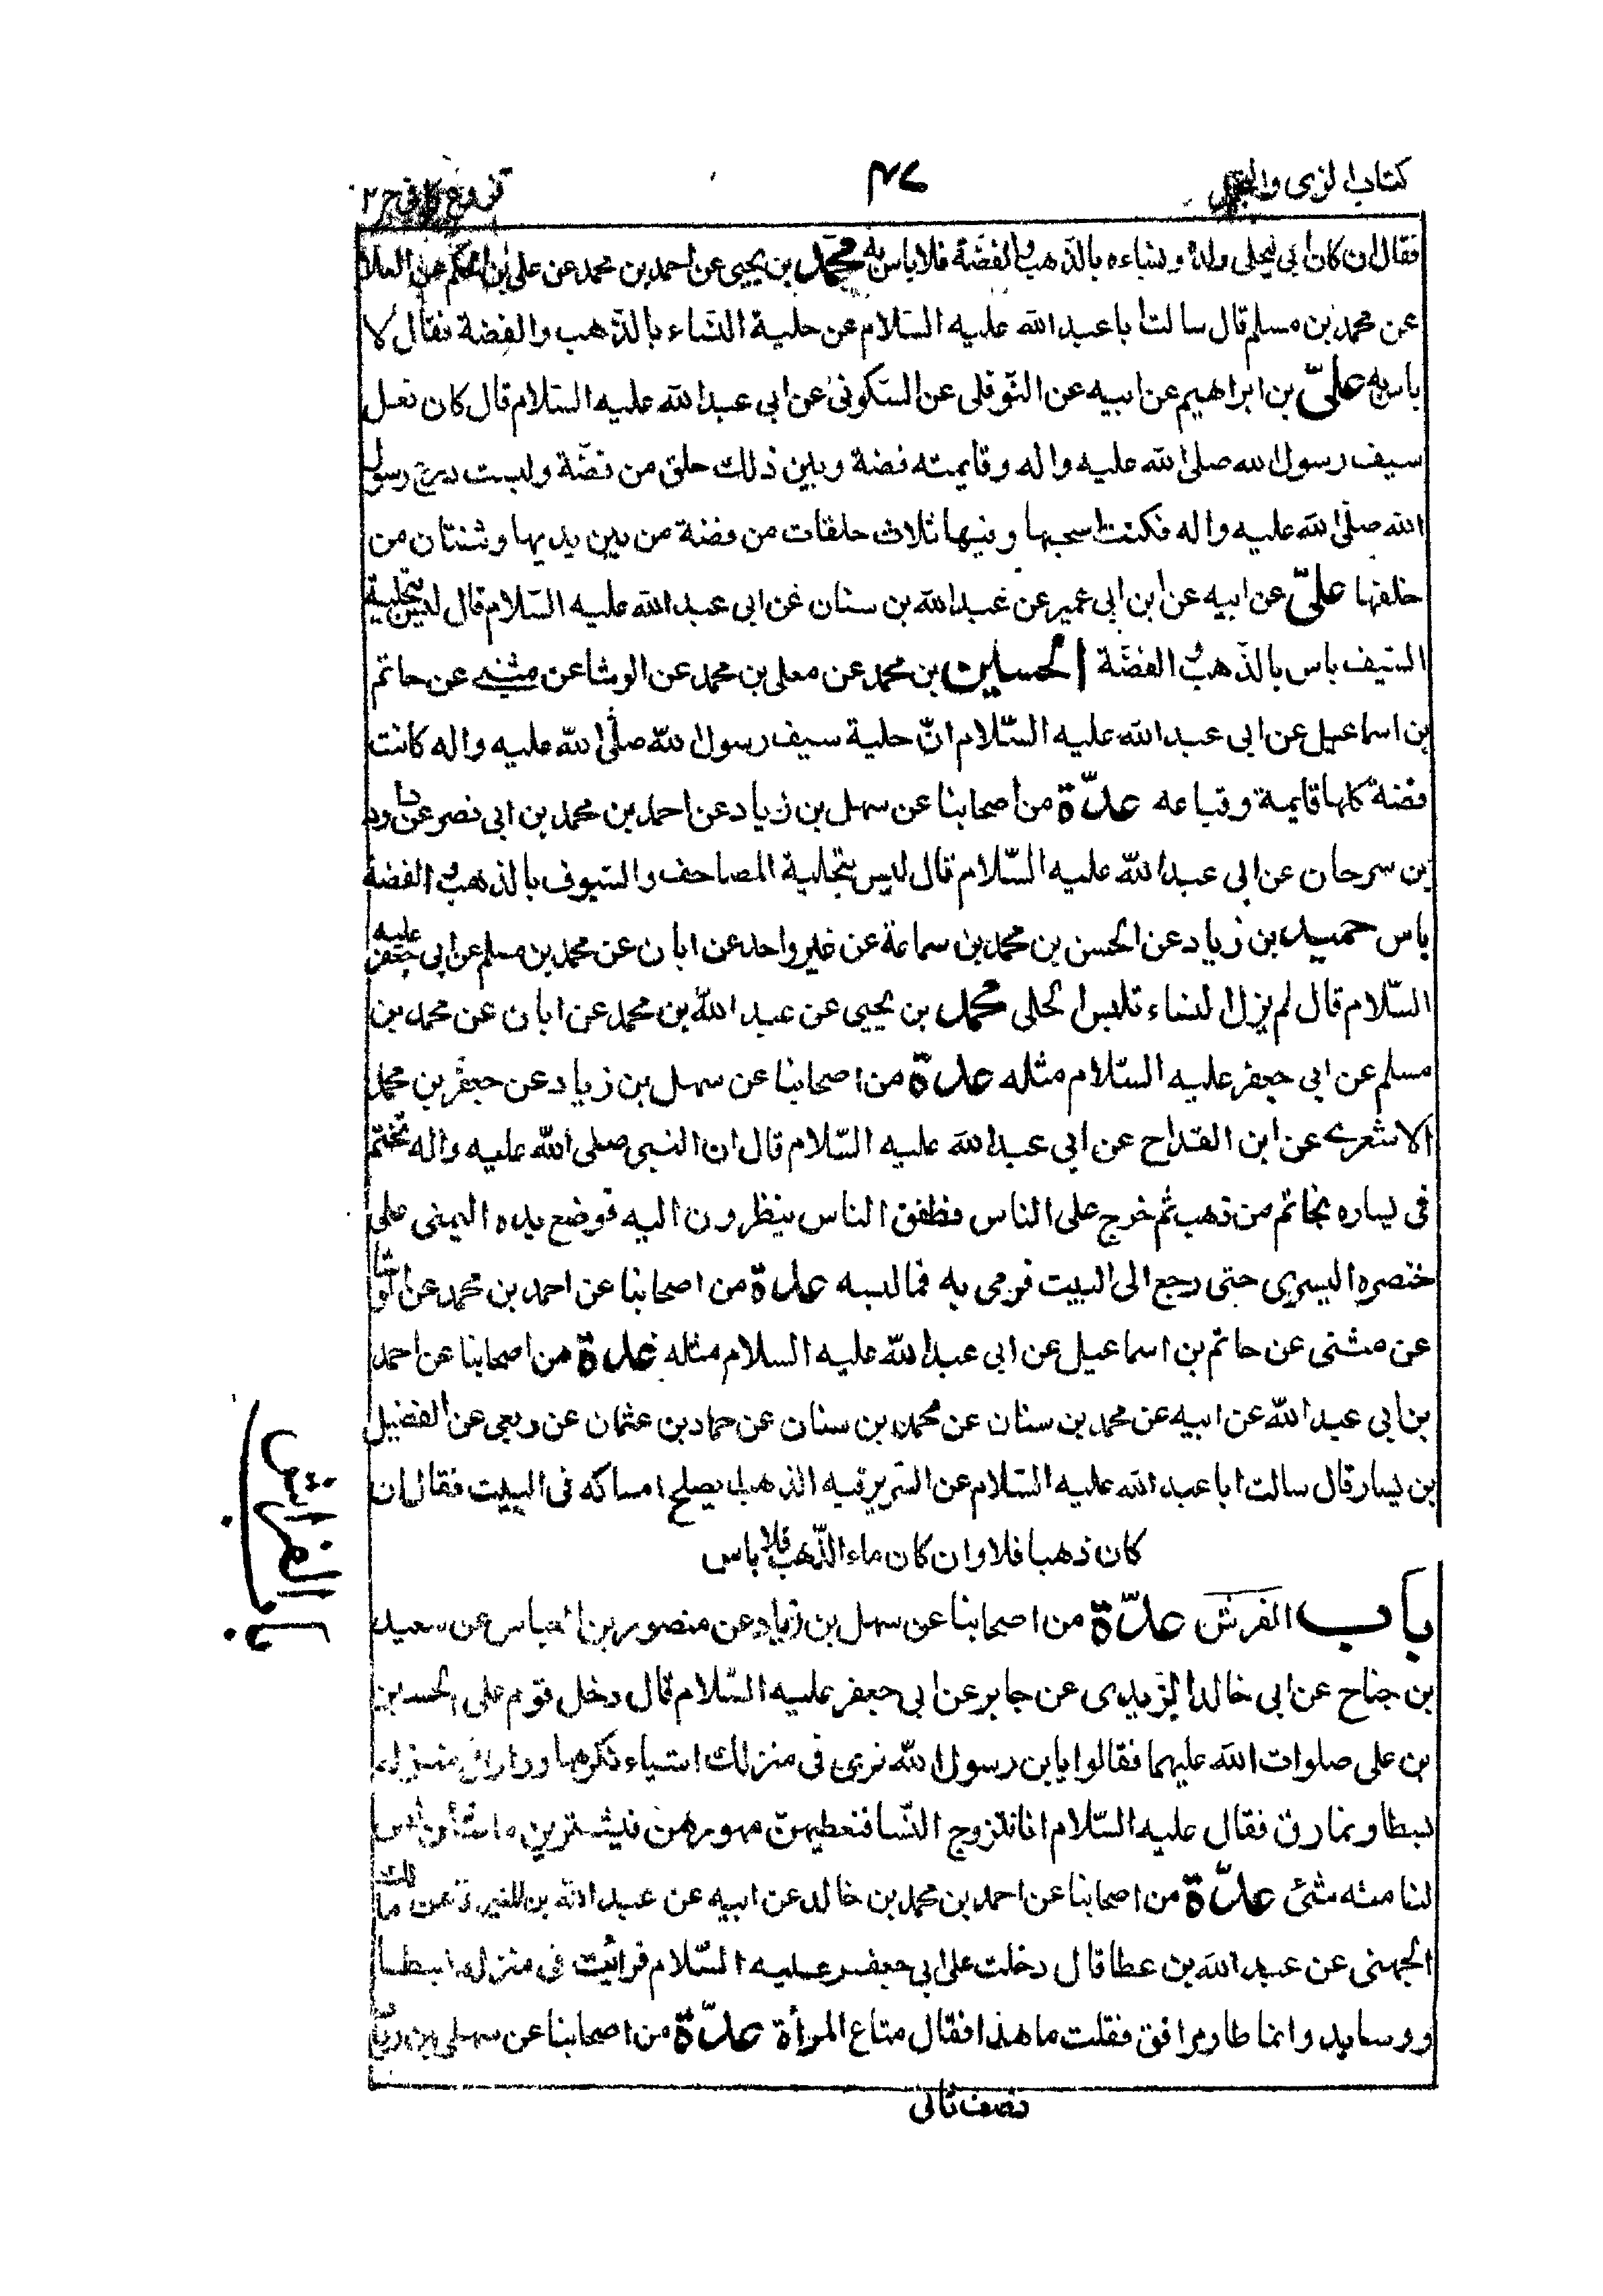 كتاب الزى والتجمل
فروع كافى ج ٢
فقال ان كان ابى ليحلى ولده ونساءه بالذهب والفضة فلا باس به محمد بن يحيى عن احمد بن محمد عن على بن الحكم عن العلا
عن محمد بن مسلم قال سالت ابا عبد الله عليه السلام عن حلية النساء بالذهب والفضة فقال لا
باس به علىّ بن ابراهيم عن ابيه عن النوفلى عن السكونى عن ابي عبد الله عليه السلام قال كان نعل
سيف رسول الله صلى الله عليه واله وقايمته فضة وبين ذلك حلق من فضّة ولبست درع رسول
الله صلى الله عليه واله فكنت اسحبها وفيها ثلاث حلقات من فضة من بين يديها وثنتان من
خلفها علىّ عن ابيه عن ابن ابى عمير عن عبد الله بن سنان عن ابى عبد الله عليه السلام قال ليس بتحلية
السيف باس بالذهب والفضّة الحسين بن محمد عن معلى بن محمد عن الوشا عن مثنى عن حاتم
بن اسماعيل عن ابى عبد الله عليه السّلام انّ حلية سيف رسول الله صلّى الله عليه واله كانت
فضة كلها قايمة وقباعه عدّة من اصحابنا عن سهل بن زياد عن احمد بن محمد بن ابى نصر عن داود
بن سرحان عن ابى عبد الله عليه السّلام قال ليس بتحلية المصاحف والسيوف بالذهب والفضة
باس حميد بن زياد عن الحسن بن محمد بن سماعة عن غير واحد عن ابان عن محمد بن مسلم عن ابى جعفر عليه
السّلام قال لم يزل النساء تلبس الحلى محمد بن يحيى عن عبد الله بن محمد عن ابان عن محمد بن
مسلم عن ابى جعفر عليه السّلام مثله عدة من اصحابنا عن سهل بن زياد عن جعفر بن محمد
الاشعرى عن ابن القداح عن ابى عبد الله عليه السّلام قال ان النبى صلى الله عليه واله تختم
فى يساره بخاتم من ذهب ثم خرج على الناس فطفق الناس ينظرون اليه فوضع يده اليمنى على
خنصره اليسرى حتى رجع الى البيت فرمى به فما لبسه عدة من اصحابنا عن احمد بن محمد عن الوشا
عن مثنى عن حاتم بن اسماعيل عن ابى عبد الله عليه السلام مثله عدة من اصحابنا عن احمد
بن ابى عبد الله عن ابيه عن محمد بن سنان عن محمد بن سنان عن حماد بن عثمان عن ربعى عن الفضيل
بن يسار قال سالت ابا عبد الله عليه السّلام عن السّرير فيه الذهب ايصلح امساكه فى البيت فقال ان
كان ذهبا فلا وان كان ماء الذّهب فلا باس
باب الفرش
باب الفرش عدّة من اصحابنا عن سهل بن زياد عن منصور بن العباس عن سعيد
بن جناح عن ابى خالد الزيدى عن جابر عن ابى جعفر عليه السّلام قال دخل قوم على الحسين
بن على صلوات الله عليهما فقالوا يا بن رسول الله نرى فى منزلك اشياء نكرهها وراوا فى منزله
بسطا ونمارق فقال عليه السّلام انا نتزوج النّسا فنعطيهنّ مهورهن فيشترين ما شئن ليس
لنا منه شئ عدّة من اصحابنا عن احمد بن محمد بن خالد عن ابيه عن عبد الله بن المغيرة عن مالك
الجهنى عن عبد الله بن عطا قال دخلت على ابى جعفر عليه السّلام فرايت فى منزله بسطا
ووسايد وانماطا ومرافق فقلت ما هذا فقال متاع المرأة عدّة من اصحابنا عن سهل بن زياد
نصف ثانى